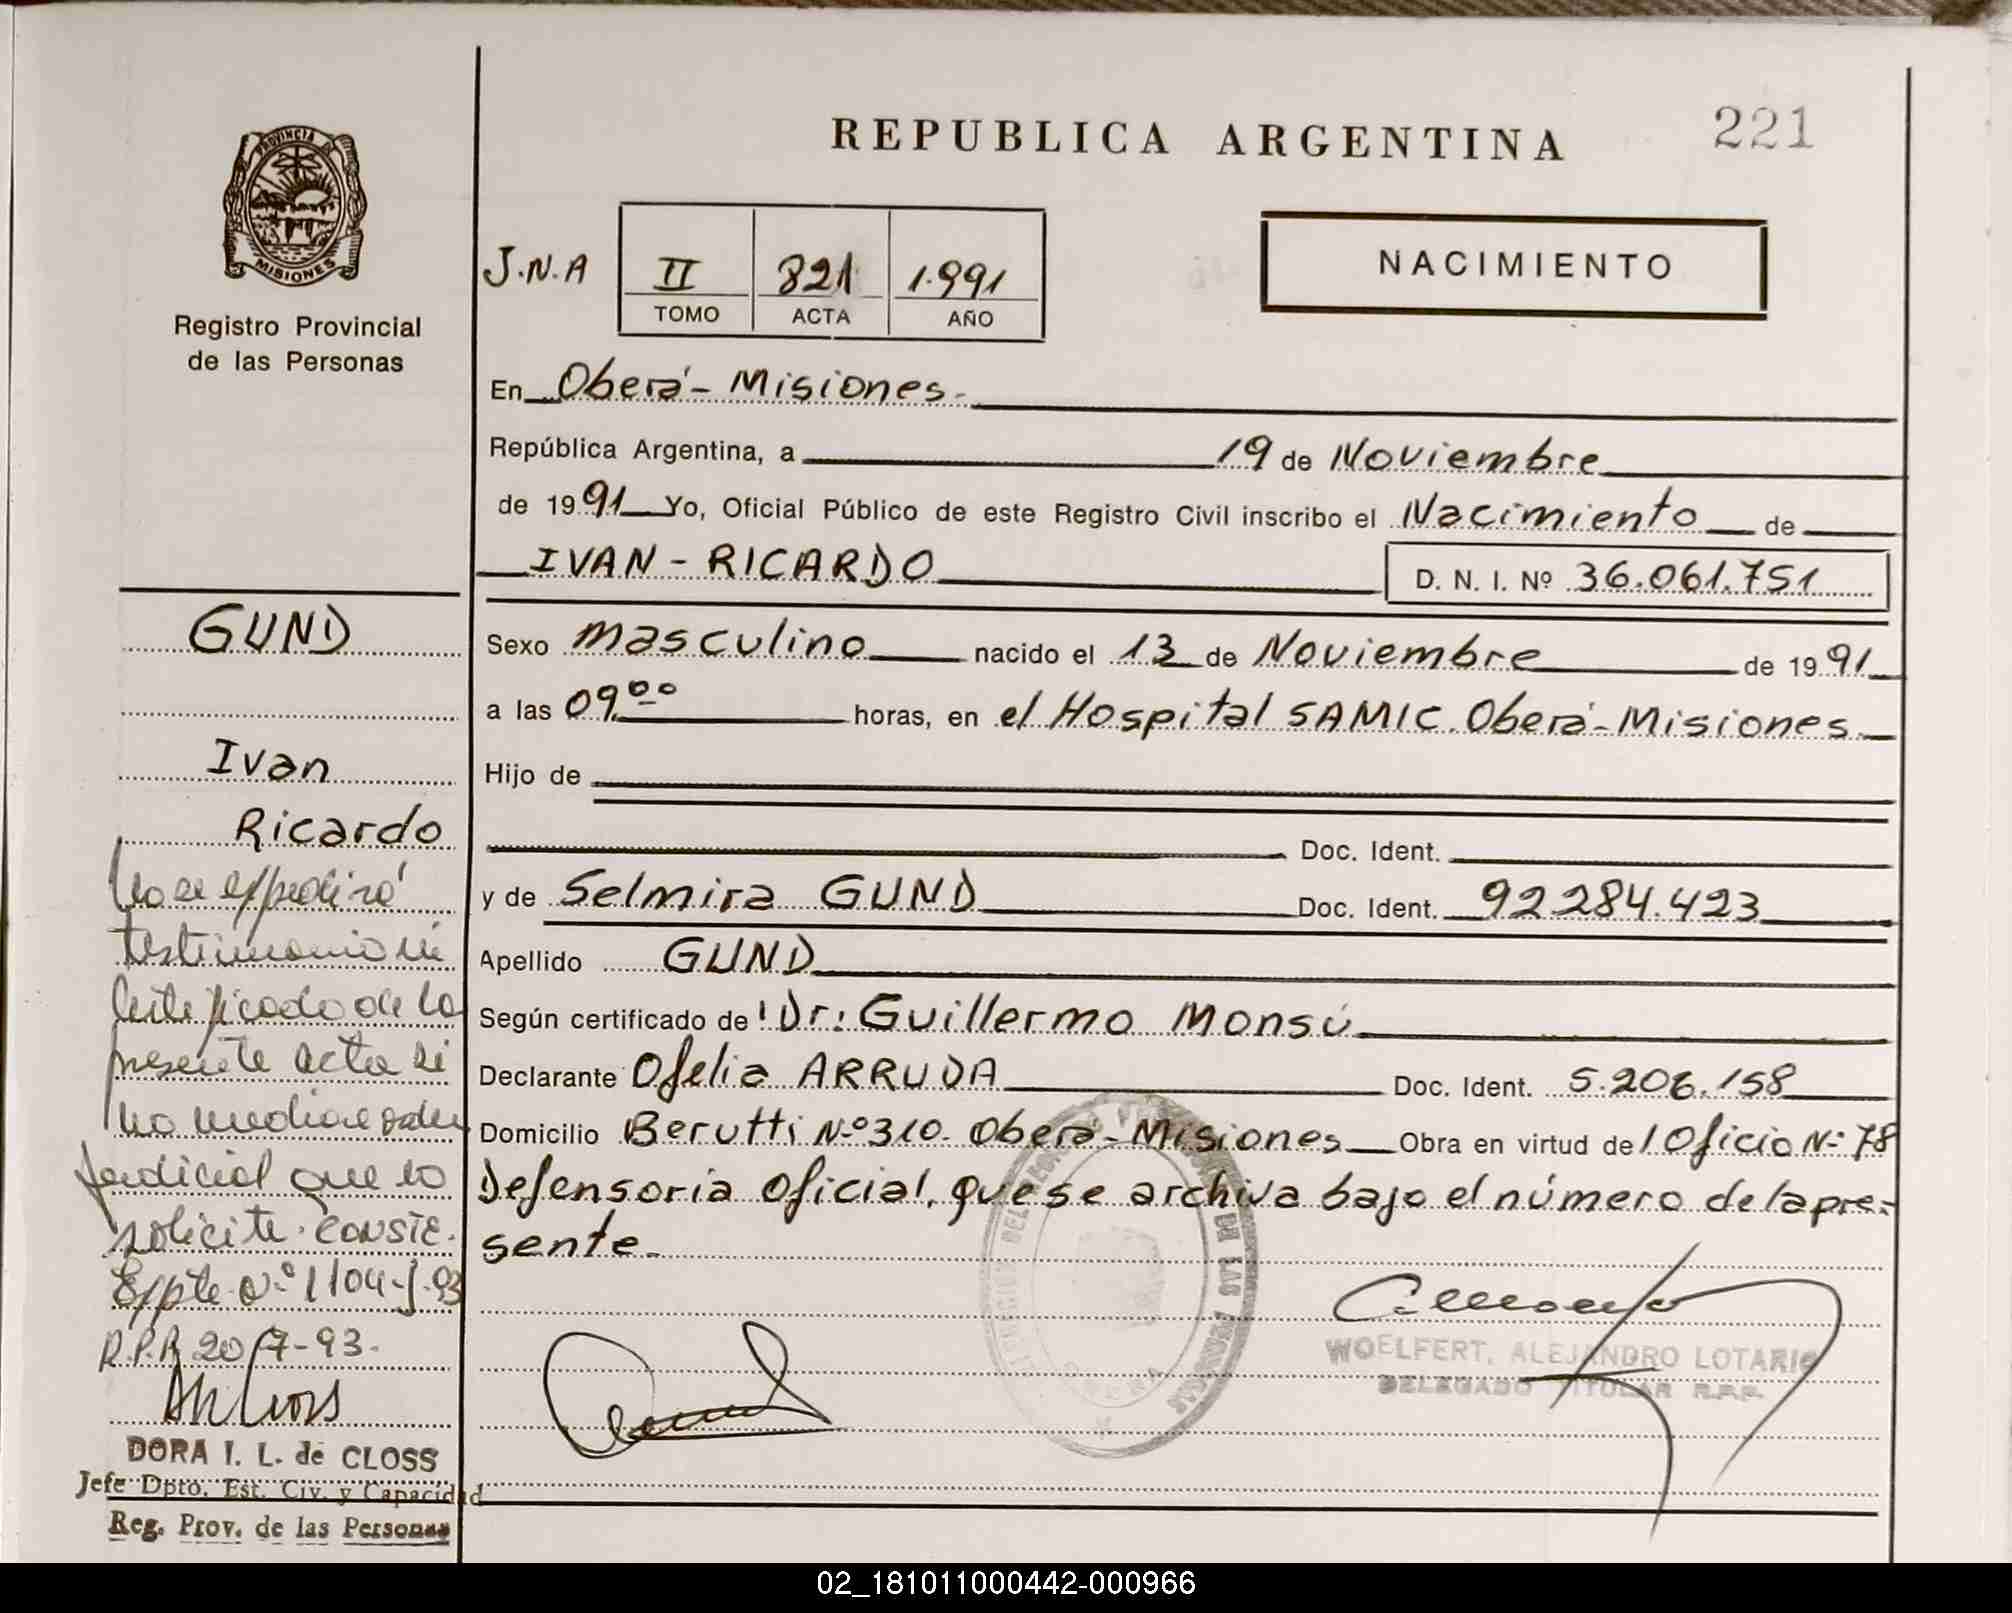 REPUBLICA ARGENTINA
221
PROVINCIA DE
MISIONES
Registro Provincial
de las Personas
J.N.A
II
821
1.991
TOMO
ACTA
AÑO
NACIMIENTO
En Oberá - Misiones.
República Argentina, a 19 de Noviembre
de 1991 Yo, Oficial Público de este Registro Civil inscribo el Nacimiento de
IVAN - RICARDO
D. N. I. Nº 36.061.751
Sexo masculino nacido el 13 de Noviembre de 1991
a las 09.00 horas, en el Hospital SAMIC. Oberá - Misiones.
Hijo de
Doc. Ident.
y de Selmira GUND Doc. Ident. 92.284.423
Apellido GUND
Según certificado de Dr: Guillermo Monsú
Declarante Ofelia ARRUDA Doc. Ident. 5.206.158
Domicilio Berutti Nº 310. Oberá - Misiones Obra en virtud de Oficio Nº 78
Defensoria Oficial, que se archiva bajo el número de la pre-
sente.
GUND
Ivan
Ricardo
No se expedirá
testimonio ni
certificado de la
presente acta si
no media orden
judicial que lo
solicite. CONSTE.
Expte Nº 1104-J-93
R.P.P. 20/7-93.
DORA I. L. de CLOSS
Jefe Dpto. Est. Civ. y Capacidad
Reg. Prov. de las Personas
DE LAS PERSONAS
OBERA
WOELFERT, ALEJANDRO LOTARIO
DELEGADO TITULAR R.P.P.
02_181011000442-000966